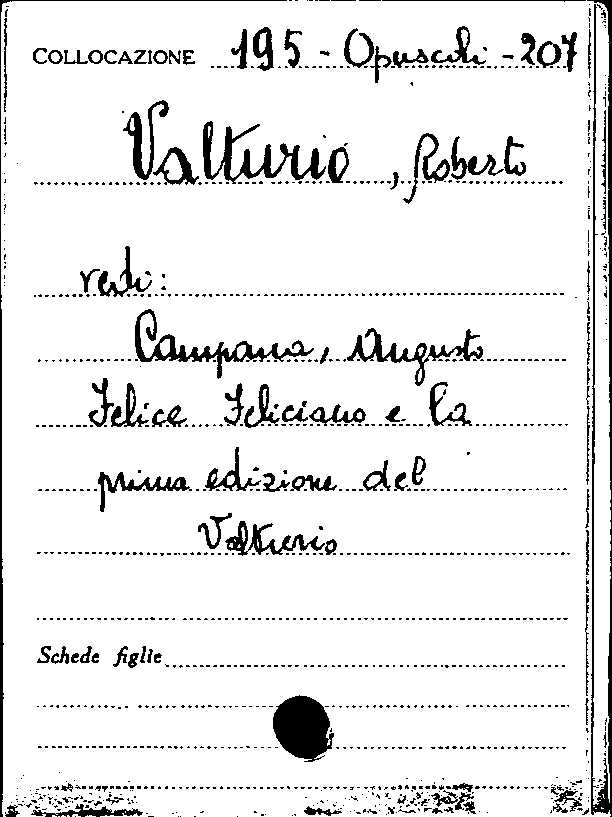 COLLOCAZIONE 195 - Opuscoli - 207
Valturio, Roberto
vedi:
Campana, Augusto
Felice Feliciano e la
prima edizione del
Valturio
Schede figlie